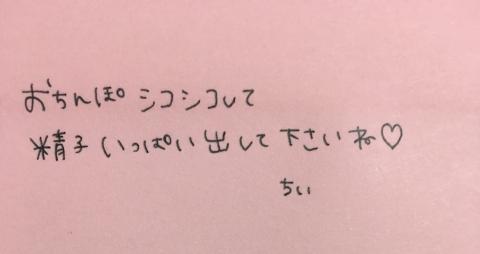 おちんぽ シコシコして
精子 いっぱい 出して 下さいね♡
ちぃ